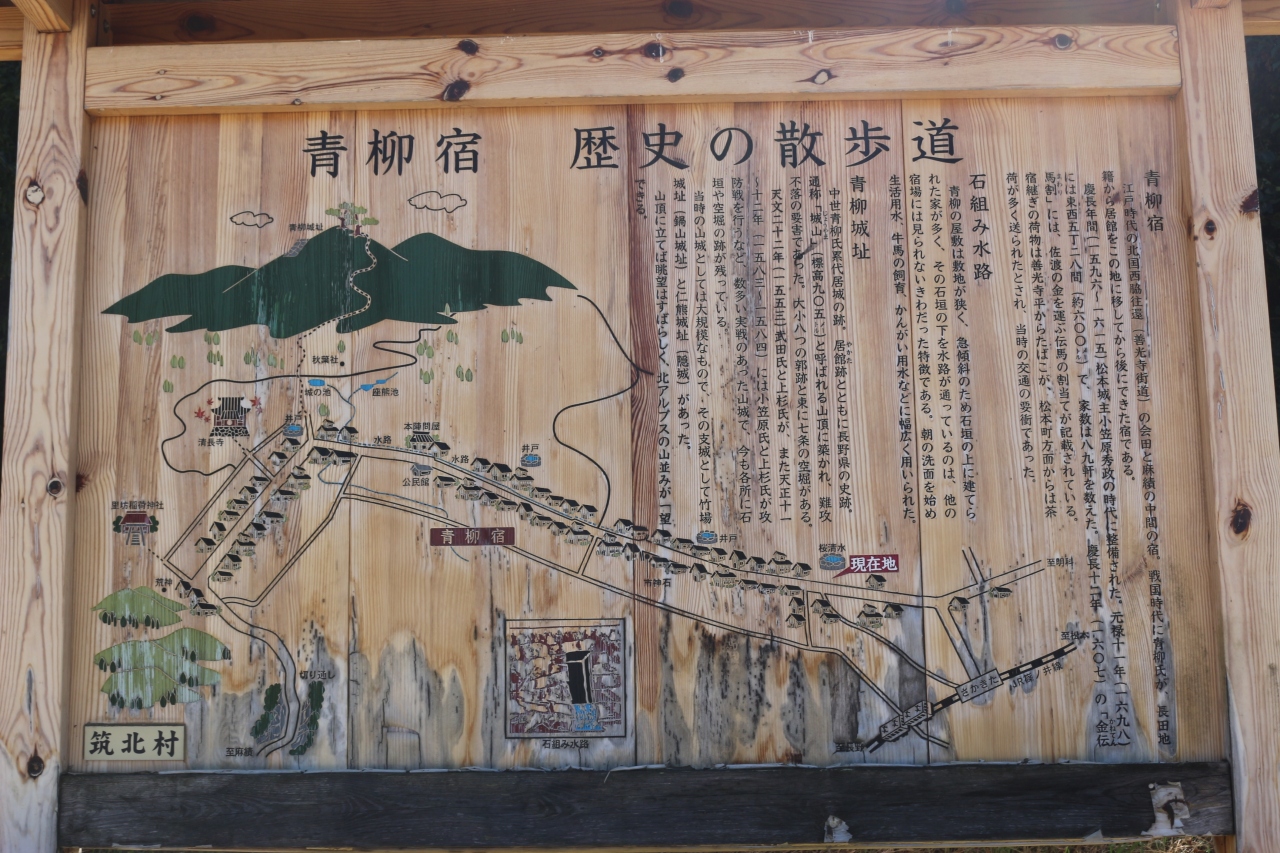 青柳宿 歴史の散歩道
青柳宿
江戸時代の北国西脇往還（善光寺街道）の会田と麻績の中間の宿。戦国時代に青柳氏が、長田地
籍から居館をこの地に移してから後にできた宿である。
慶長年間（一五九六〜一六一五）松本城主小笠原秀政の時代に整備された。元禄十一年（一六九八）
には東西五丁二八間（約六〇〇m）で、家数は八九軒を数えた。慶長十二年（一六〇七）の「金伝
馬割」には、佐渡の金を運ぶ伝馬の割当てが記載されている。
宿継ぎの荷物は善光寺平からたばこが、松本町方面からは茶
荷が多く送られたとされ、当時の交通の要衝であった。
石組み水路
青柳の屋敷は敷地が狭く、急傾斜のため石垣の上に建てら
れた家が多く、その石垣の下を水路が通っているのは、他の
宿場には見られないきわだった特徴である。朝の洗面を始め
生活用水、牛馬の飼育、かんがい用水などに幅広く用いられた。
青柳城址
中世青柳氏累代居城の跡。居館跡とともに長野県の史跡。
通称「城山」（標高九〇五m）と呼ばれる山頂に築かれ、難攻
不落の要害であった。大小八つの郭跡と東に七条の空堀がある。
天文二十二年（一五五三）武田氏と上杉氏が、また天正十一
〜十二年（一五八三〜一五八四）には小笠原氏と上杉氏が攻
防戦を行うなど、数多い実戦のあった山城で、今も各所に石
垣や空堀の跡が残っている。
当時の山城としては大規模なもので、その支城として竹場
城址（鍋山城址）と仁熊城址（隠城）があった。
山頂に立てば眺望はすばらしく、北アルプスの山並みが一望
できる。
青柳城址
秋葉社
城の池
座熊池
清長寺
井戸
水路
本陣問屋
水路
公民館
井戸
里坊稲荷神社
青柳宿
井戸
桜清水
現在地
荒神
荒神石
至明科
至松本
JR篠ノ井線
さかきた
切り通し
至麻績
石組み水路
至長野
筑北村